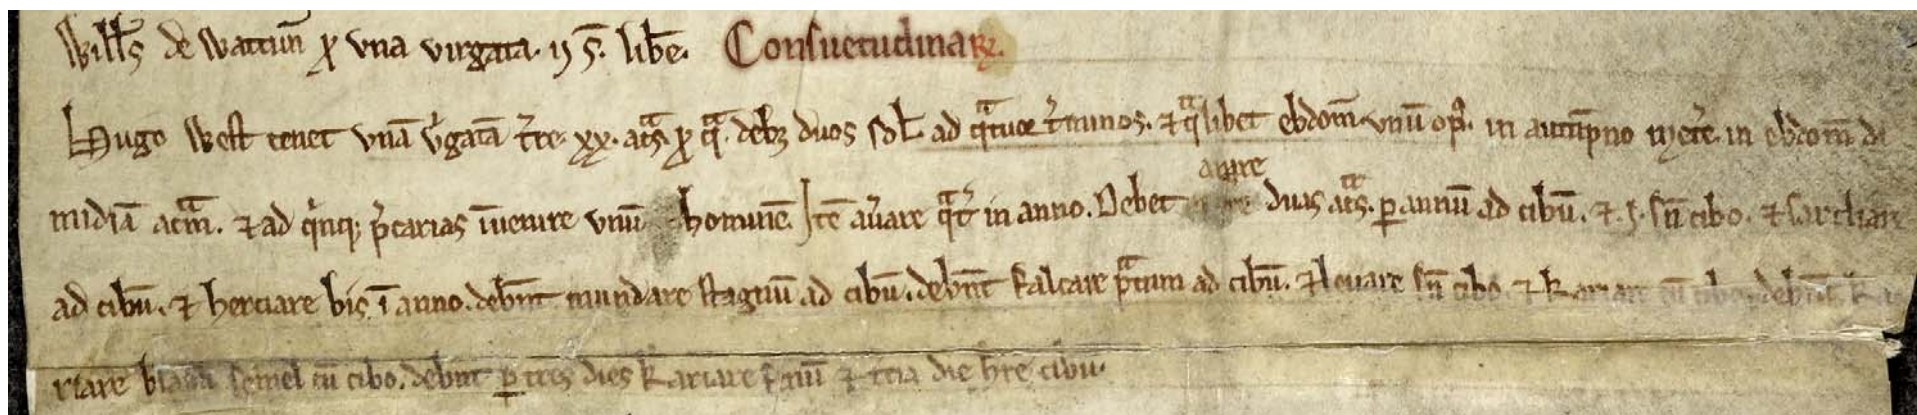 Willś de wattun̄ ꝓ vna virgata. ij s̄. lib̄e. Consuetudinaꝝ.
Hugo West tenet vnā v̓gatā t̓re. xx. acᵃs. ꝓ qᵃ. debꝫ duos sol̄ ad qᵃtuor t̓minos. ⁊ qᵃlibet ebdom̄. vnū op̄. in autūpno in ebdom̄ di
midiā acᵃm. ⁊ ad qⁱnqꝫ p̓carias īuenire vnū hominē. Itē au̓are qᵃt̓ in anno. Debet arare duas acᵃs. ꝑ annū ad cibū. ⁊ .j. sn̄ cibo. ⁊ sarcliare
ad cibū. ⁊ herciare bis ī anno. deb̄nt mundare stagnū ad cibū. deb̄nt falcare pᵃtum ad cibū. ⁊ leuare sn̄ cibo. ⁊ kariare cū cibo. deb̄nt ka
riare bladā semel cū cibo. deb̄nt ꝑ tres dies kariare ⁊ t̓cia die h̄re cibū.